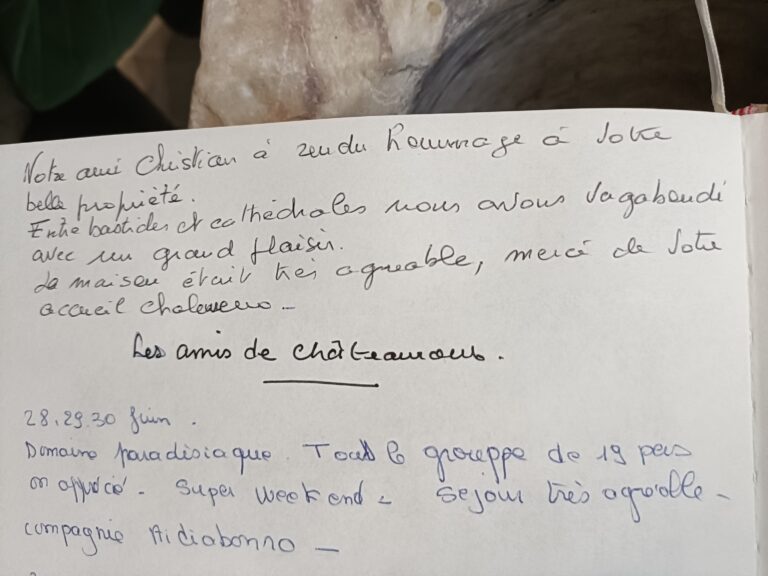 Notre ami Christian à rendu hommage à Votre
belle propriété.
Entre bastides et cathédrales nous avons Vagabondé
avec un grand plaisir.
La maison était très agreable, merci de Votre
accueil chaleureux _
Les amis de
28.29.30 Juin.
Domaine paradisiaque. Tout le grouppe de 19 pers
on apprécié. Super week end - Sejour très agréable -
compagnie